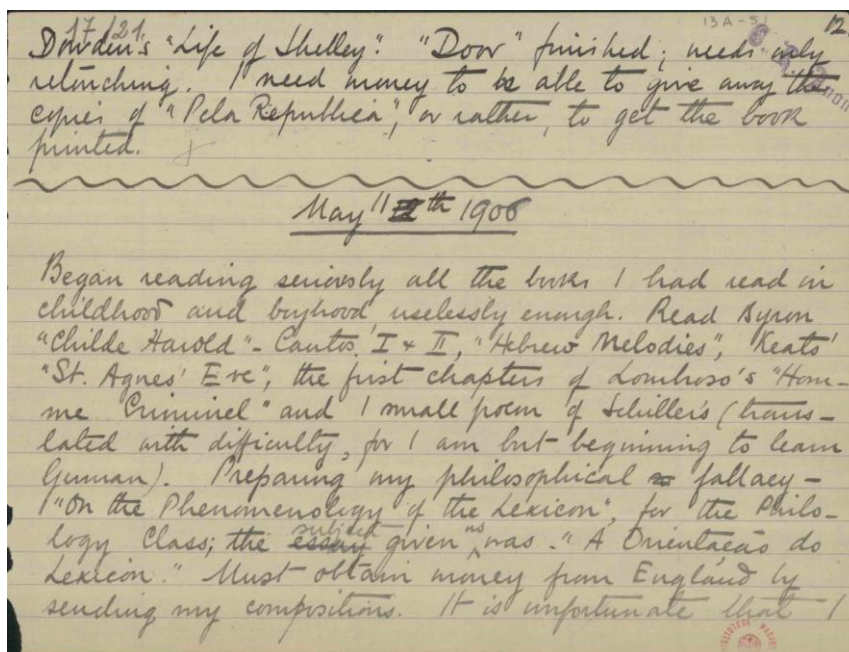 17/21
13A-51
12
Dowden's "Life of Shelley". "Door" finished; needs only
retouching. I need money to be able to give away the
copies of "Pela Republica", or rather, to get the book
printed.
May 11th 1906
Began reading seriously all the books I had read in
childhood and boyhood uselessly enough. Read Byron
"Childe Harold" - Cantos I & II, "Hebrew Melodies", Keats'
"St. Agnes' Eve", the first chapters of Lombroso's "Hom-
me Criminel" and 1 small poem of Schiller's (trans-
lated with difficulty, for I am but beginning to learn
German). Preparing my philosophical fallacy -
"On the Phenomenology of the Lexicon", for the Philo-
logy Class; the subject given us was - "A Orientação do
Lexicon." Must obtain money from England by
sending my compositions. It is unfortunate that I